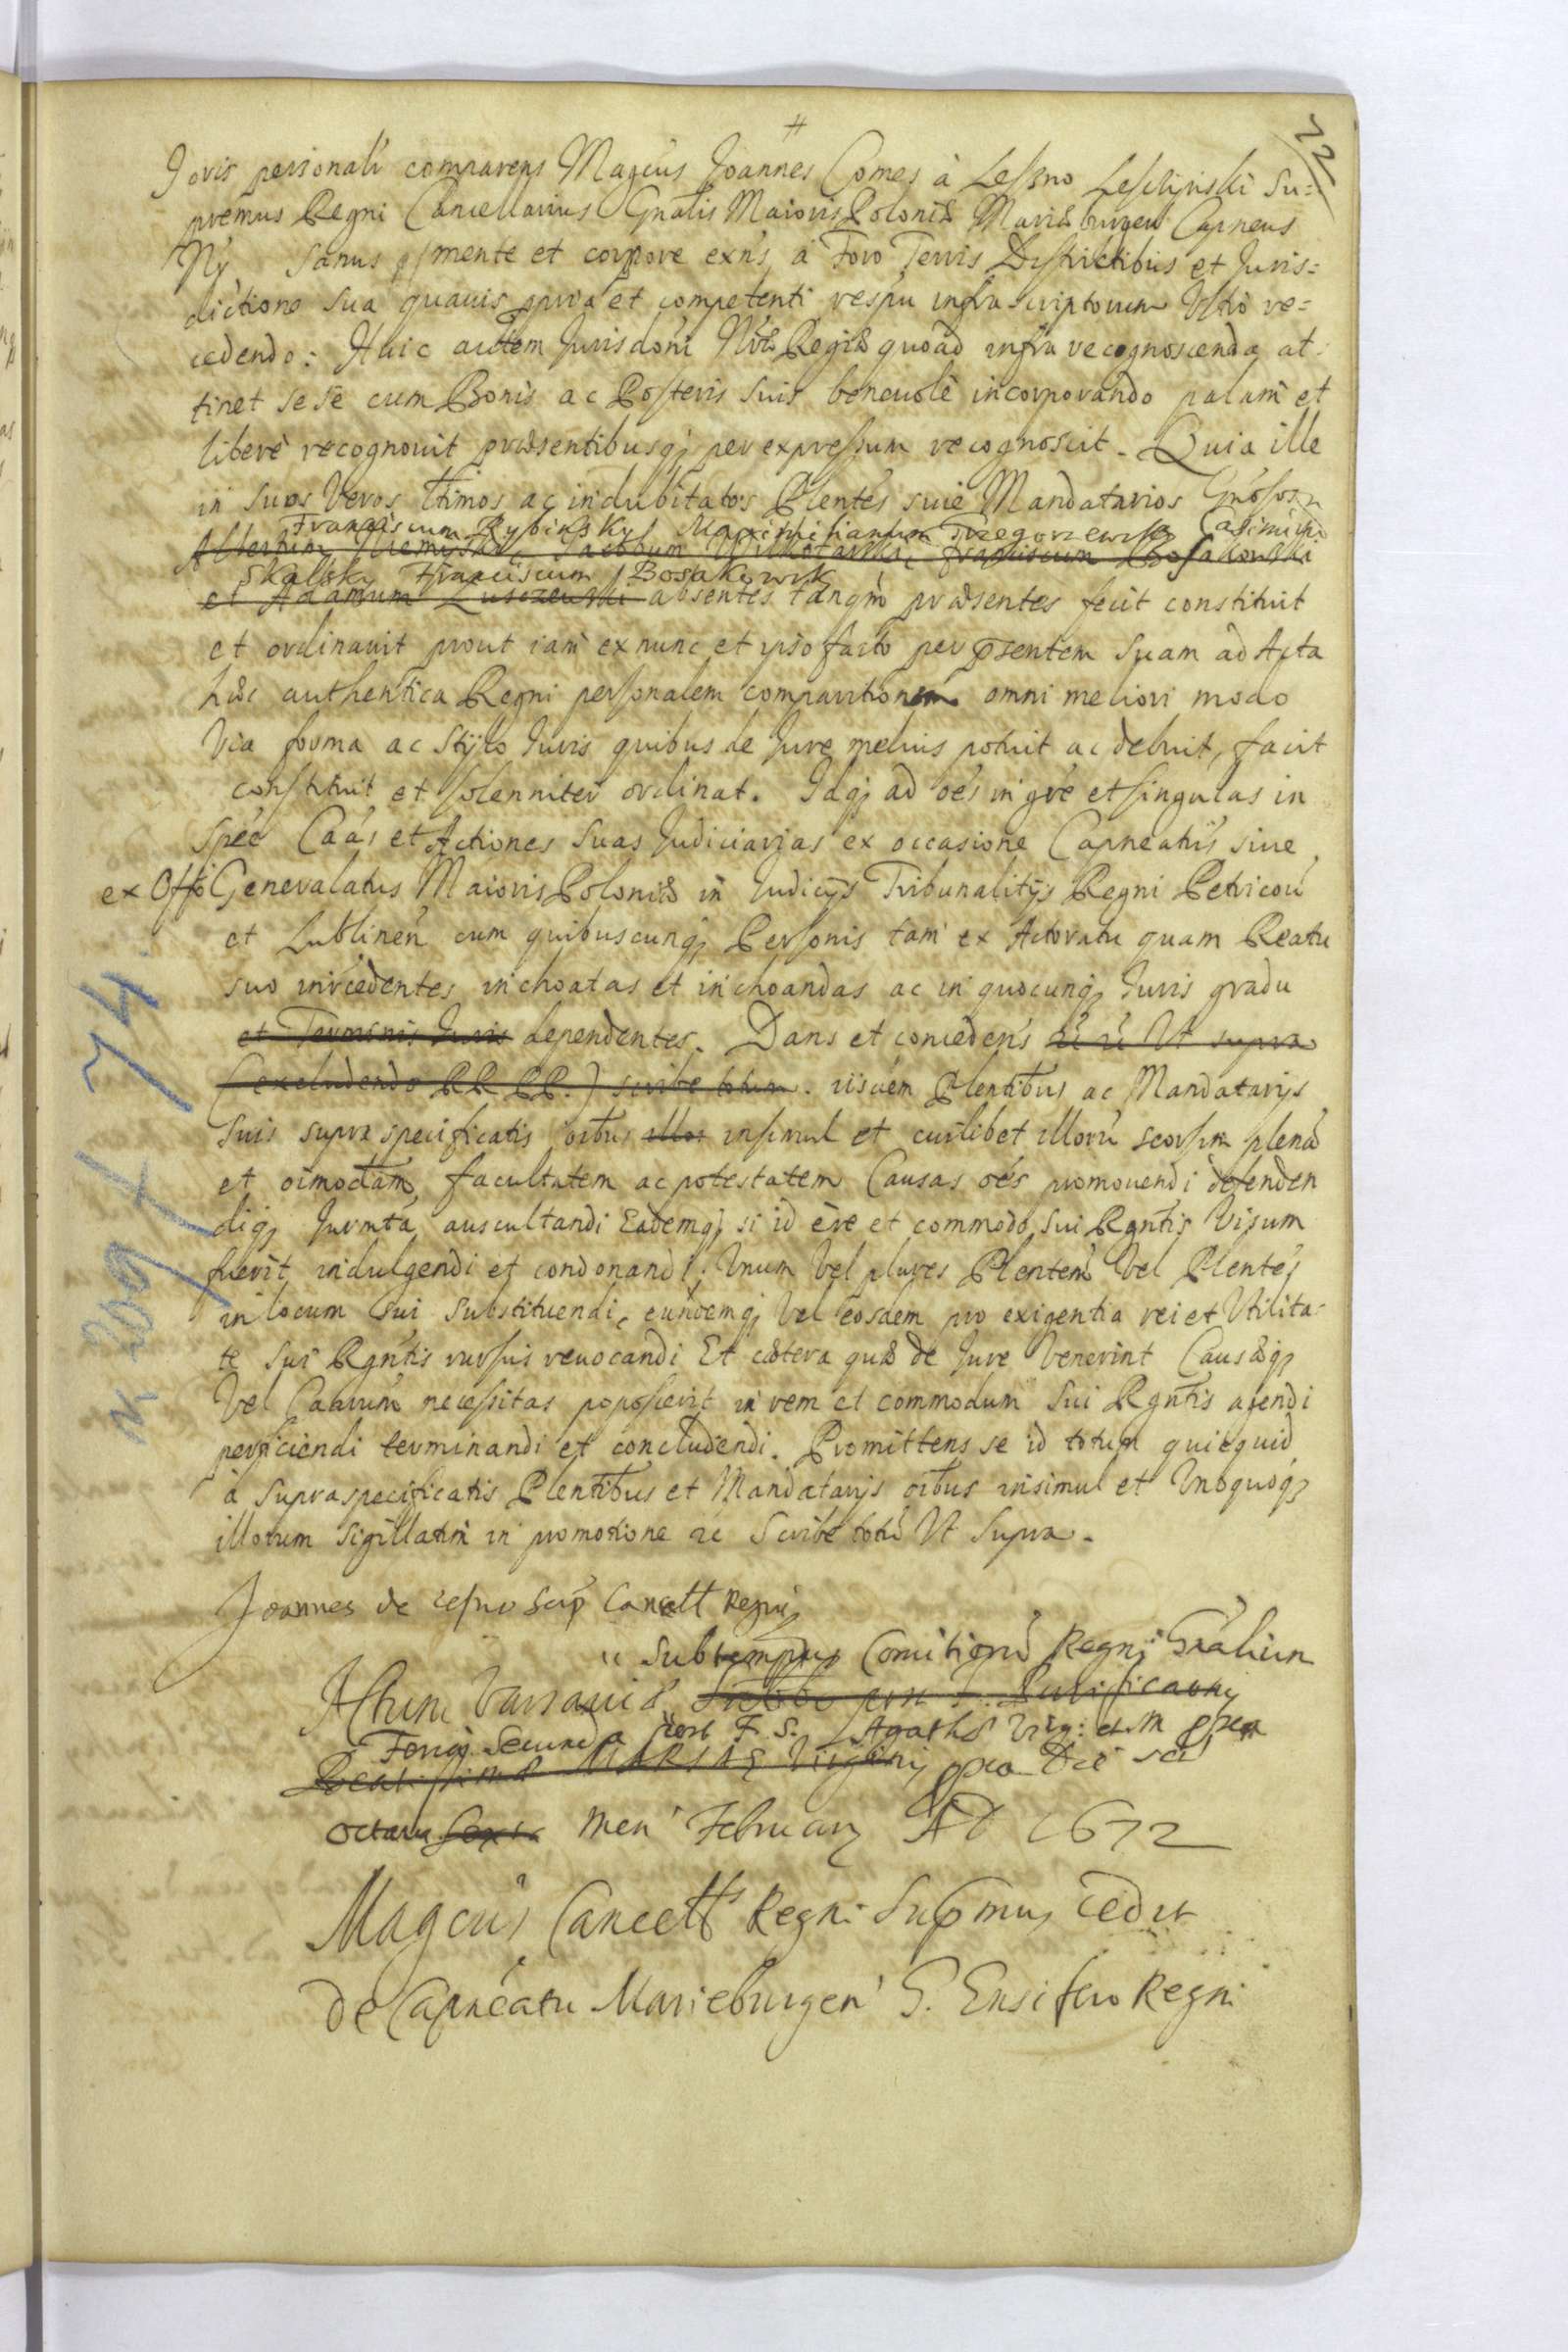 #
72
Joris personali comparens Magcus Joannes Comes à Leszno Leszczyński Su=
premus Regni Cancellarius Gnalis Maioris Poloniæ Mariæburgen Capneus
Ny sanus mente et corpore exns, a Foro Terris Districtibus et Juris=
dictione sua quauis ppria et competenti respu infrascriptorum Ultro re=
cedendo: Huic autem Jurisdoni Nræ Regiæ quoad infra recognoscenda at=
tinet sese cum Bonis ac Posteris suis beneuole incorporando palam et
libere recognouit præsentibusq; per expressum recognoscit. Quia ille
in suos Veros Ltimos ac indubitatos Plentes siue Mandatarios Gnosos
Franciscum Rybinsky Maximilianum Trzegorzewsk Casimirū
Albertum Jacobum Franciscum Bosakowski
Skalsky Franciscum Bosakowsk
et Adamum absentes tanqm̄ præsentes fecit constituit
et ordinauit prout iam ex nunc et ipso facto per psentem suam ad Acta
hæc authentica Regni personalem comparitionem omni meliori modo
Via forma ac Stylo Juris quibus de Jure melius potuit ac debuit, facit
constituit et solenniter ordinat. Idq; ad oes in gre et singulas in
spee Caas et Actiones suas Judiciarias ex occasione Capneatus siue
ex Offo Generalatus Maioris Poloniæ in Iudicijs Tribunalitijs Regni Petricou
et Lublinen cum quibuscunq; Personis tam ex Actoratu quam Reatu
suo incedentes inchoatas et inchoandas ac in quocunq; Juris gradu
et Terminis Juris dependentes. Dans et concedens Ut supra
(excludendo RR PP.) scribe totum. iisdem Plentibus ac Mandatarijs
Suis supra specificatis oibus illos insimul et cuilibet illorū seorsim plenā
et oimodam, facultatem ac potestatem Causas oes promouendi defenden
diq; Jurmta auscultandi Eademq; si id ere et commodo sui Rgntis Visum
fuerit indulgendi et condonandi; Unum Vel plures Plentem Vel Plentes
in locum sui substituendi, eundemq; Vel eosdem pro exigentia rei et Utilita-
te sui Rgntis rursus reuocandi Et cætera quæ de Jure Venerint Causæq;
Vel Caarum necessitas poposcerit in rem et commodum sui Rgntis agendi
perficiendi terminandi et concludendi. Promittens se id totum quicquid
à supraspecificatis Plentibus et Mandatarijs oibus insimul et Unoquoq;
illorum sigillatim in promotione &c Scribe totū Ut Supra.
Joannes de Lesno Sup Cancell Regni
Sub tempus Comitiorū Regni Gnalium
Actum Varsauiæ Sabbatho post F. Purificaonis
Feria Secunda post F. S. Agathæ Virg: et M ppia
Beatissimæ MARIÆ Virginis ppia Die sci
octaua sexta Men Februarij AD 1672
Magcus Cancells Regni Supmus cedit
de Capneatu Marieburgen G. Ensifero Regni
n 209 L 74